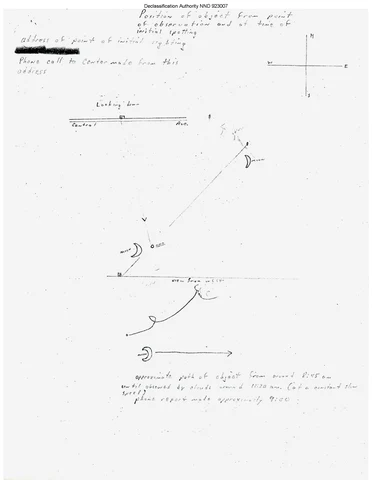 Declassification Authority NND 923007
Position of object from point
of observation and at time of
initial spotting
address of point of initial sighting
Phone call to Center made from this
address
N
W
E
S
Looking down
Central
Ave.
moon
moon
approximate path of object from around
until obscured by clouds around 10:30 (at a constant slow
speed)
phone report made approximately 9:00